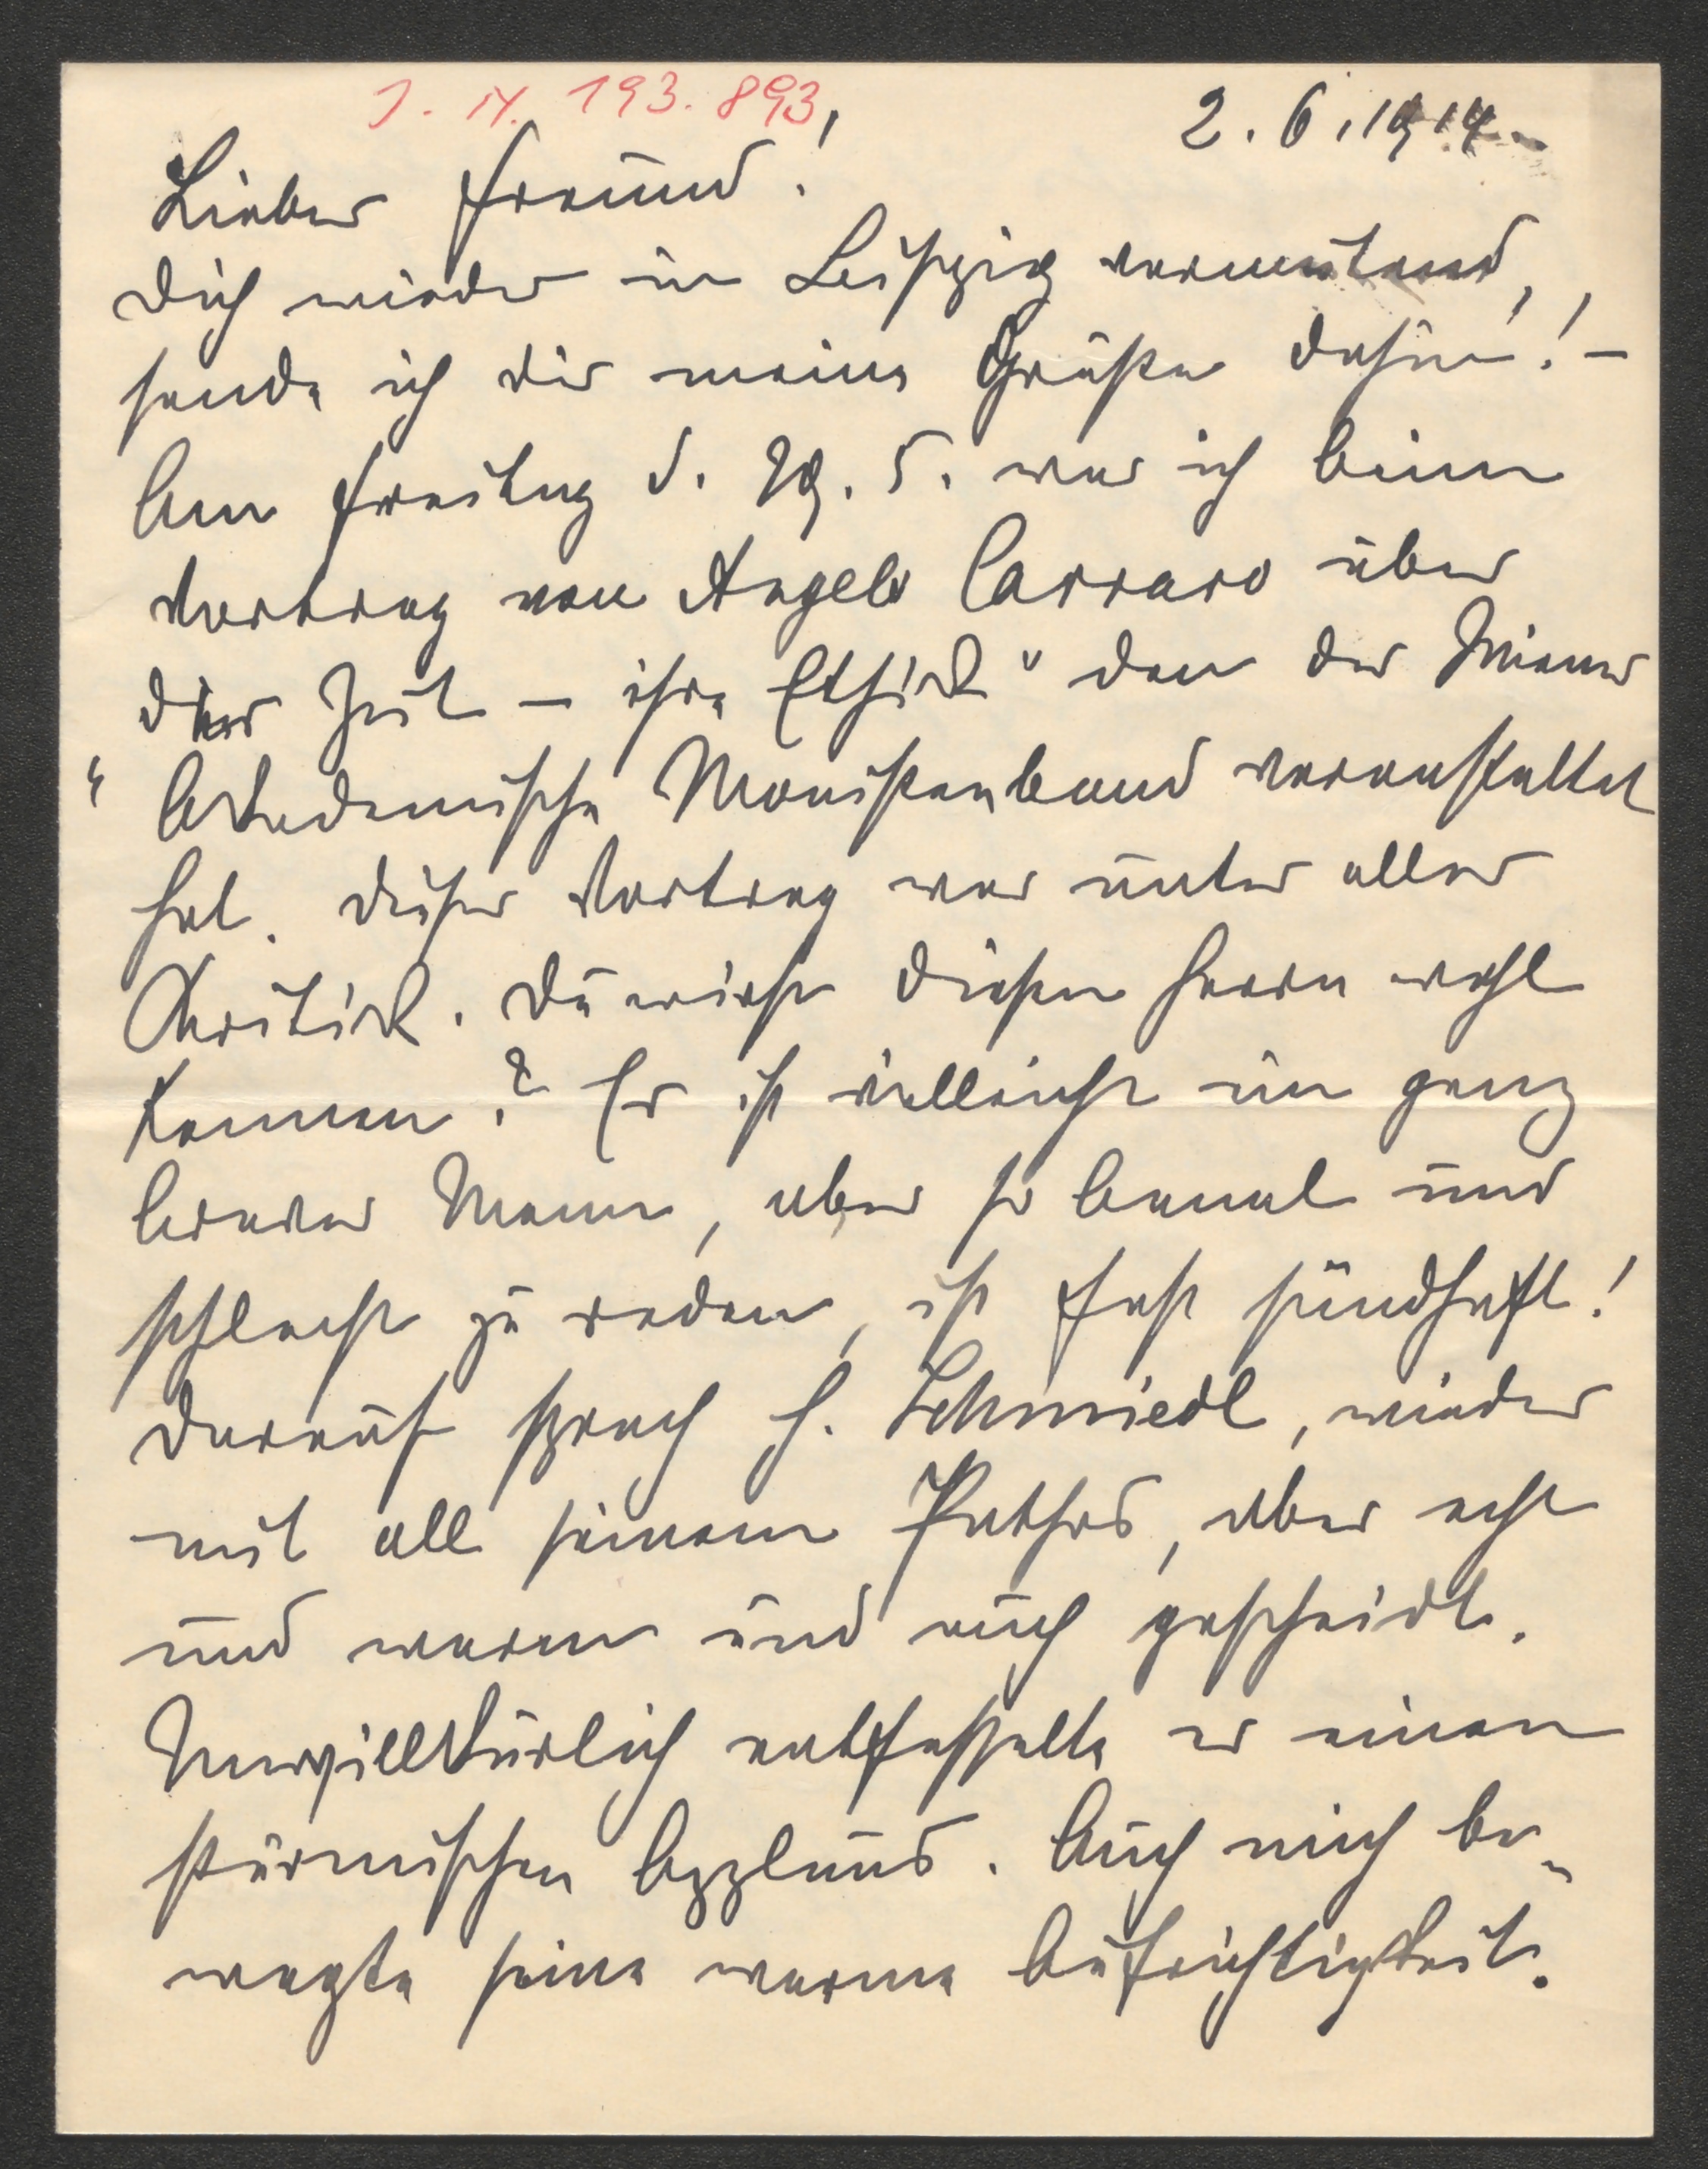 J. N. 193.893
2.6.1914.
Lieber Freund!
Dich wieder in Leipzig vermutend,
sende ich dir meine Grüße dahin! –
Am Freitag d. 29. 5. war ich beim
Vortrag von Angelo Carraro über
der Zeit – ihre Ethik" den der Wiener
" Akademische Monistenbund veranstaltet
hat. Dieser Vortrag war unter aller
Kritik. Du wirst diesen Herrn wohl
kennen? Er ist vielleicht ein ganz
braver Mann, aber so banal und
schlecht zu reden, ist fast sündhaft!
Darauf sprach H. Schmiedl, wieder
mit all seinem Pathos, aber echt
und warm und auch gescheidt.
Unwillkürlich entfesselte er einen
stürmischen Applaus. Auch mich be-
wegte seine warme Aufrichtigkeit.